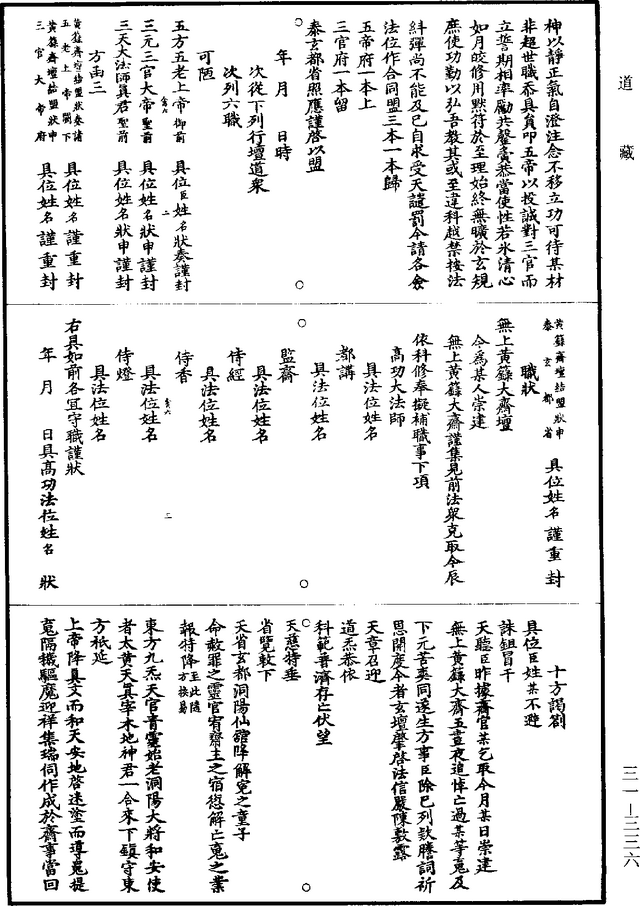 道藏
神以靜正氣自澄注念不移立功可待某材
非超世職忝具員叩五帝以投誠對三官而
立誓期相率勵共馨齋恭當使性若氷清心
如月皎修用默符於至理始終無曠於玄規
庶使功勤以弘吾教其或至違科越禁按法
糾彈尚不能及已自求受天譴罰今請各僉
法位作合同盟三本一本歸
五帝府一本上
三官府一本留
泰玄都省照應謹啓以盟
年 月 日時
次從下列行壇道衆
次列六職
可陋
五方五老上帝 御前 具位臣姓名狀奏謹封
三元三官大帝 聖前 具位姓名狀申謹封
三天大法師眞君 聖前 具位姓名狀申謹封
方函三
黃籙齋壇結盟狀奏諸
五老上帝闕下 具位姓名謹重封
黃籙齋壇結盟狀申
三官大帝府 具位姓名謹重封
黃籙齋壇結盟狀申
泰玄都省 具位姓名謹重封
職狀
無上黃籙大齋壇
今爲某人崇建
無上黃籙大齋謹集見前法衆克取今辰
依科修奉擬補職事下項
高功大法師
具法位姓名
都講
具法位姓名
監齋
具法位姓名
侍經
具法位姓名
侍香
具法位姓名
侍燈
具法位姓名
右具如前各宜守職謹狀
年 月 日具高功法位姓名 狀
十方謁劄
具位臣姓某不避
誅鉏冒干
天聽臣昨據齋官某乞取今月某日崇建
無上黃籙大齋五晝夜追悼亡過某等䰟及
下元苦爽同遂生方事臣除已列欵謄詞祈
思開度今者玄壇肇啓法信嚴陳敷露
天章召迎
道炁恭依
科範普濟存亡伏望
天慈特垂
省覽敕下
天省玄都洞陽仙舘降解寃之童子
命赦罪之靈官宥齋主之宿愆解亡䰟之業
報特降 至此隨方換易
東方九炁天官青靈始老洞陽大將和安使
者太黃天眞宰本地神君一合來下鎮守東
方袛延
上帝降具文而和天安地啓迷塗而導䰟提
䰟隔機驅魔迎祥集瑞伺作成於齋事當回
三一—三三六